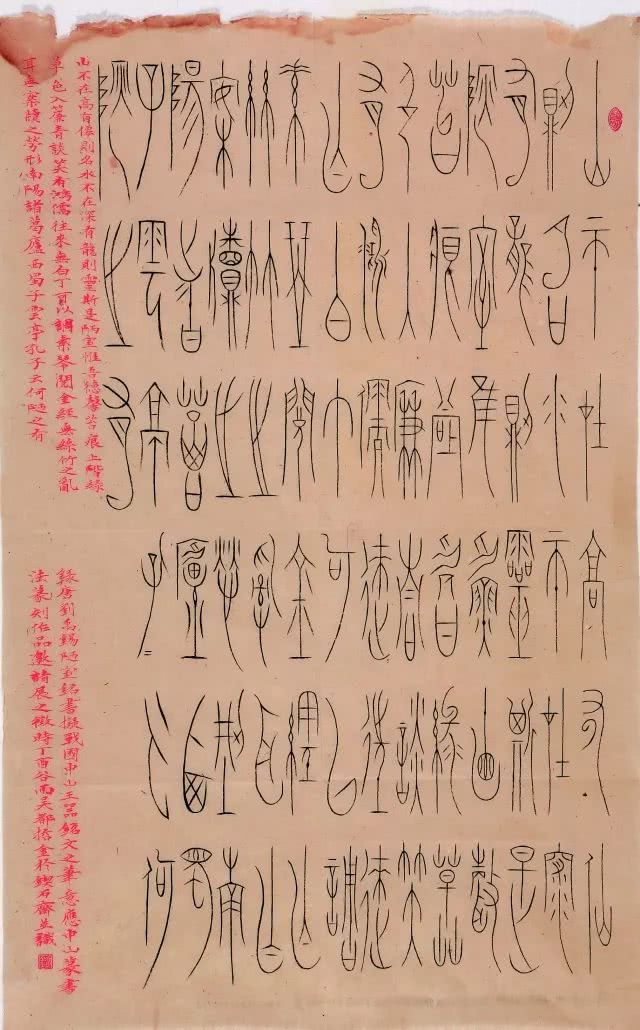 山不在高有仙
則名水不在深
有龍則靈斯是
陋室惟吾德馨
苔痕上階綠草
色入簾青談笑
有鴻儒往來
無白丁可以調
素琴閱金經無
絲竹之亂耳無
案牘之勞形南
陽諸葛廬西蜀
子雲亭孔子云何
陋之有
山不在高有僊則名水不在深有龍則靈斯是陋室惟吾德馨苔痕上階綠
草色入簾青談笑有鴻儒往來無白丁可以調素琴閱金經無絲竹之亂
耳無案牘之勞形南陽諸葛廬西蜀子雲亭孔子云何陋之有
錄唐劉禹錫陋室銘書擬戰國中山王器銘文之筆意應中山篆書
法篆刻作品邀請展之徵時丁酉谷雨吳郡金於鍥石齋並識